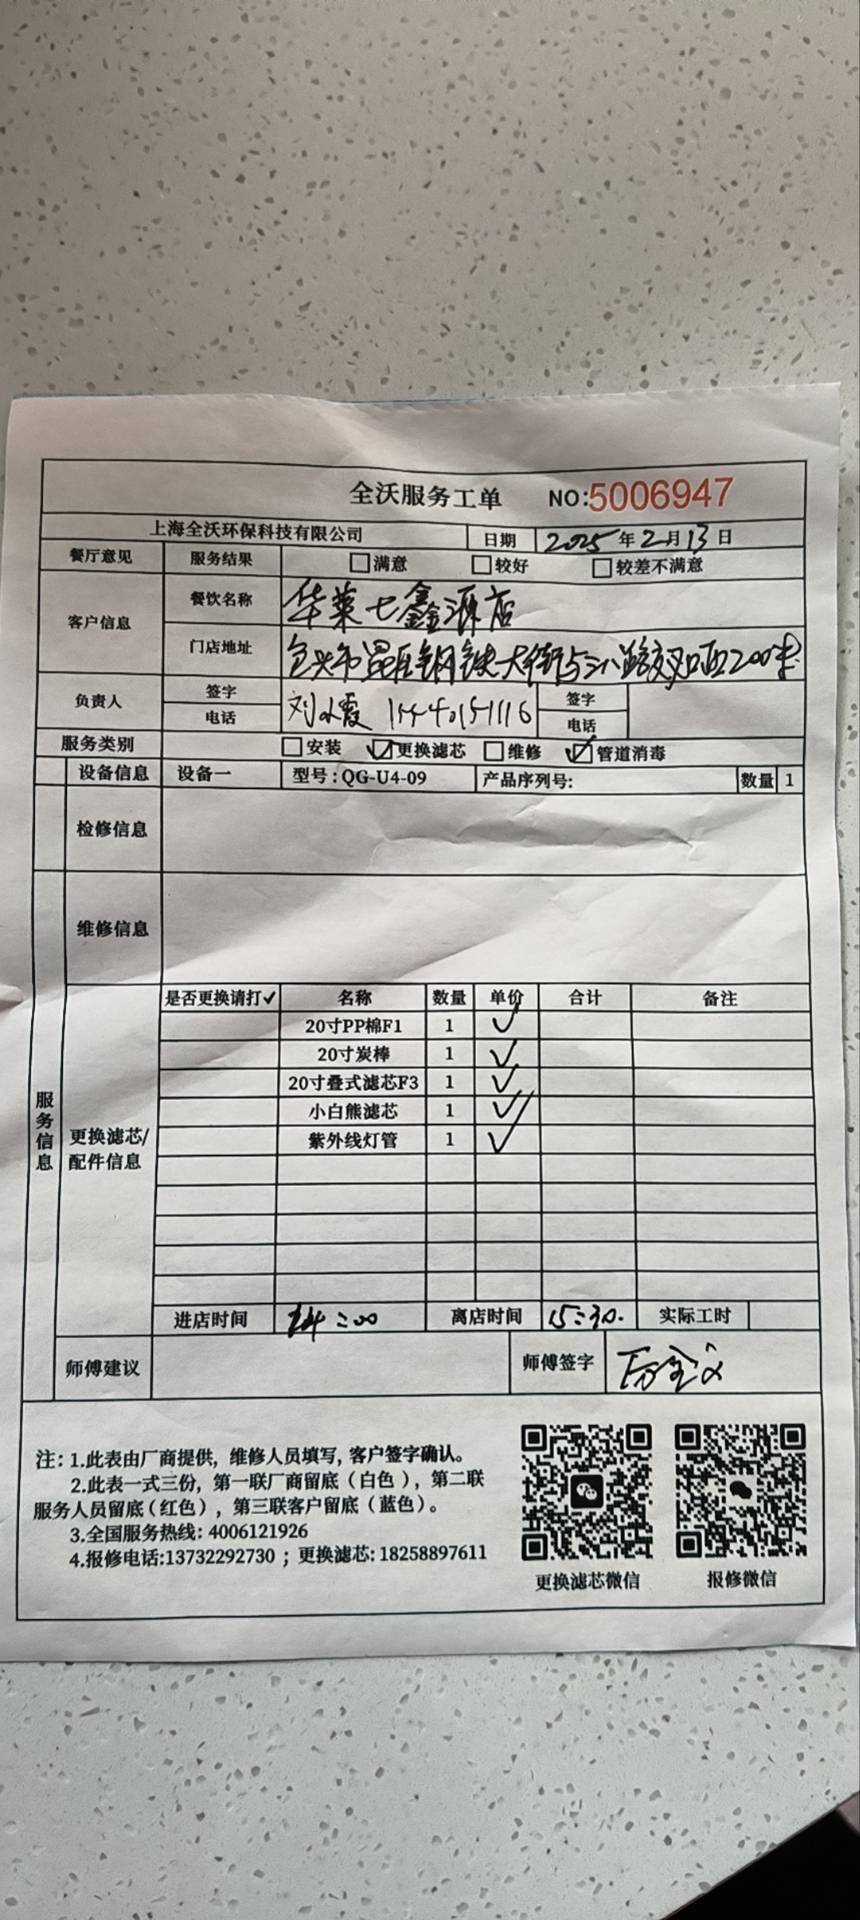 全沃服务工单 NO:5006947
上海全沃环保科技有限公司 日期 2025年2月13日
餐厅意见 服务结果 □满意 □较好 □较差不满意
客户信息 餐饮名称 华莱士鑫源店
门店地址 包头市昆区钢铁大街与三八路交叉口西200米
负责人 签字 刘水霞 签字
电话 15440151116 电话
服务类别 □安装 ☑更换滤芯 □维修 ☑管道消毒
设备信息 设备一 型号:QG-U4-09 产品序列号: 数量 1
检修信息
维修信息
服务信息
更换滤芯/配件信息
是否更换请打✓ 名称 数量 单价 合计 备注
20寸PP棉F1 1 ✓
20寸炭棒 1 ✓
20寸叠式滤芯F3 1 ✓
小白熊滤芯 1 ✓
紫外线灯管 1 ✓
进店时间 14:00 离店时间 15:30. 实际工时
师傅建议 师傅签字
注: 1.此表由厂商提供, 维修人员填写, 客户签字确认。
2.此表一式三份, 第一联厂商留底 (白色), 第二联
服务人员留底 (红色), 第三联客户留底 (蓝色)。
3.全国服务热线: 4006121926
4.报修电话:13732292730 ; 更换滤芯: 18258897611
更换滤芯微信 报修微信